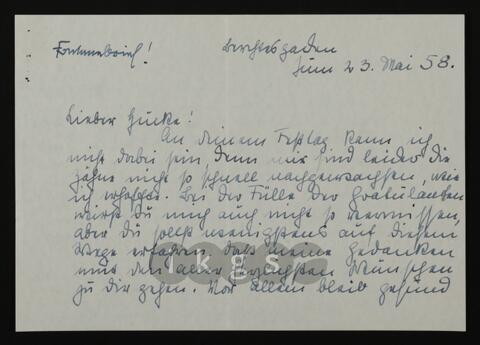 Berchtesgaden
zum 23. Mai 58.
Lieber Zucke!
An deinem Festtag kann ich
nicht dabei sein, denn mir sind leider die
Zähne nicht so schnell nachgewachsen, wie
ich erhoffte. Bei der Fülle der Gratulanten
wirst du mich auch nicht so vermissen,
aber du sollst wenigstens auf diesem
Wege erfahren, dass meine Gedanken
mit den aller herzlichsten Wünschen
zu dir gehen. Vor allem bleib gesund
ikgs